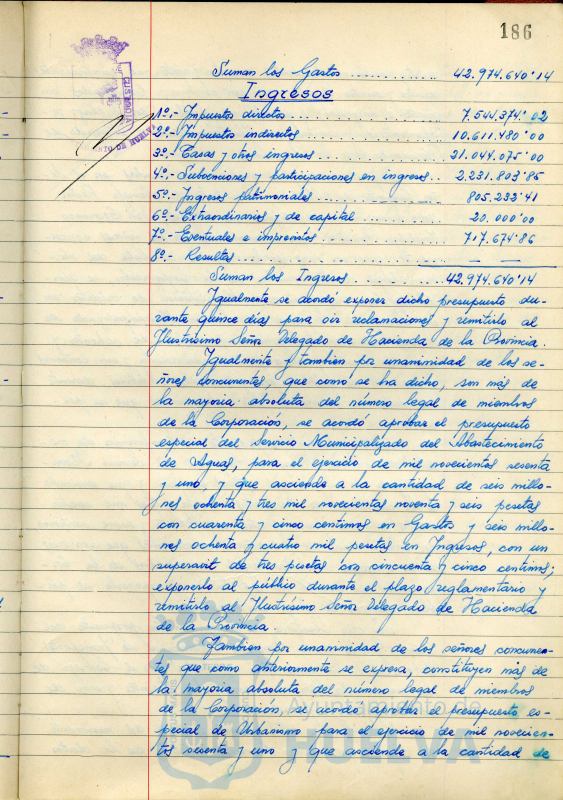 186
Suman los Gastos ............ 42.974.640'14
Ingresos
1º.- Impuestos directos .................. 7.544.374'02
2º.- Impuestos indirectos ............... 10.611.480'00
3º.- Tasas y otros ingresos ............. 21.044.075'00
4º.- Subvenciones y participaciones en ingresos .. 2.231.803'85
5º.- Ingresos patrimoniales ............. 805.233'41
6º.- Extraordinarios y de capital ........ 20.000'00
7º.- Eventuales e imprevistos ............ 717.674'86
8º.- Resultas ..................... — —
Suman los Ingresos .......... 42.974.640'14
Igualmente se acordó exponer dicho presupuesto du-
rante quince días para oir reclamaciones y remitirlo al
Ilustrísimo Señor Delegado de Hacienda de la Provincia.
Igualmente y tambien por unaminidad de los se-
ñores concurrentes, que como se ha dicho, son más de
la mayoria absoluta del número legal de miembros
de la Corporación, se acordó aprobar el presupuesto
especial del Servicio Municipalizado del Abastecimiento
de Aguas, para el ejercicio de mil novecientos sesenta
y uno, y que asciende a la cantidad de seis millo-
nes ochenta y tres mil novecientas noventa y seis pesetas
con cuarenta y cinco centimos en Gastos y seis millo-
nes ochenta y cuatro mil pesetas en Ingresos, con un
superavit de tres pesetas con cincuenta y cinco centimos;
exponerlo al público durante el plazo reglamentario y
remitirlo al Ilustrísimo Señor Delegado de Hacienda
de la Provincia.
Tambien por unaminidad de los señores concurren-
tes que como anteriormente se expresa, constituyen más de
la mayoria absoluta del número legal de miembros
de la Corporación, se acordó aprobar el presupuesto es-
pecial de Urbanismo para el ejercicio de mil novecien-
tos sesenta y uno y que asciende a la cantidad de
Ayuntamiento de
HUELVA